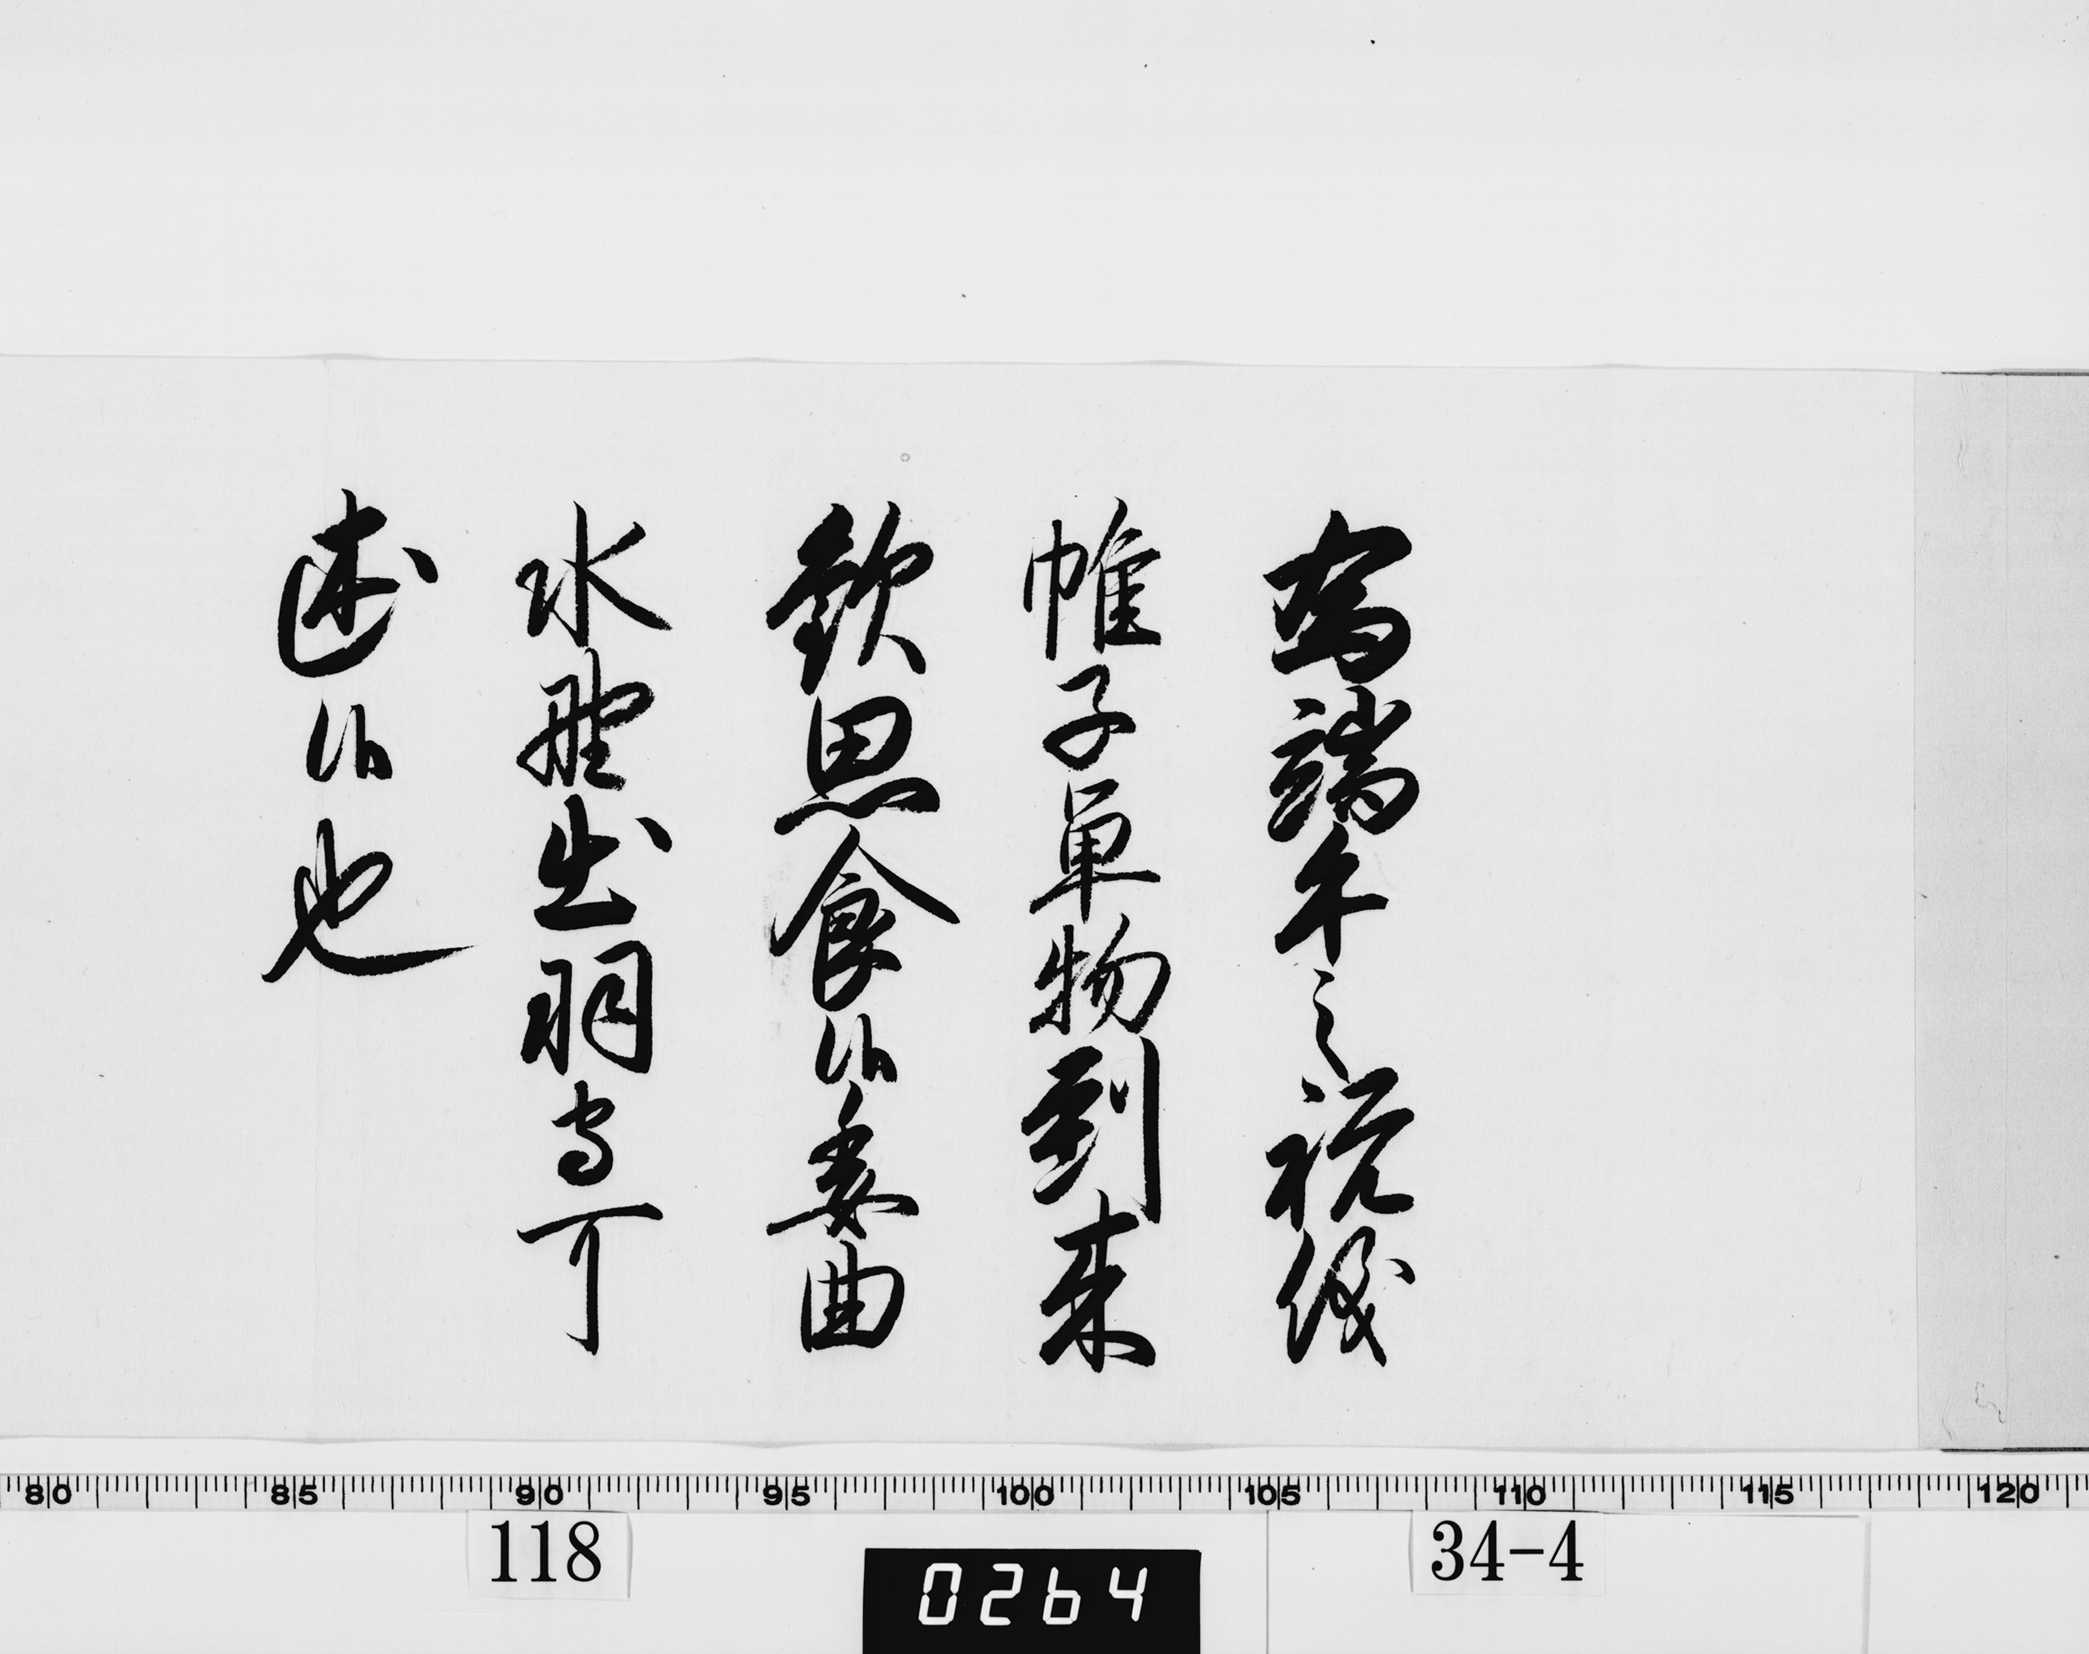 為端午之祝儀
帷子単物到来
歓思食候委曲
水野出羽守可
述候也
80 85 90 95 100 105 110 115 120
118
0264
34-4